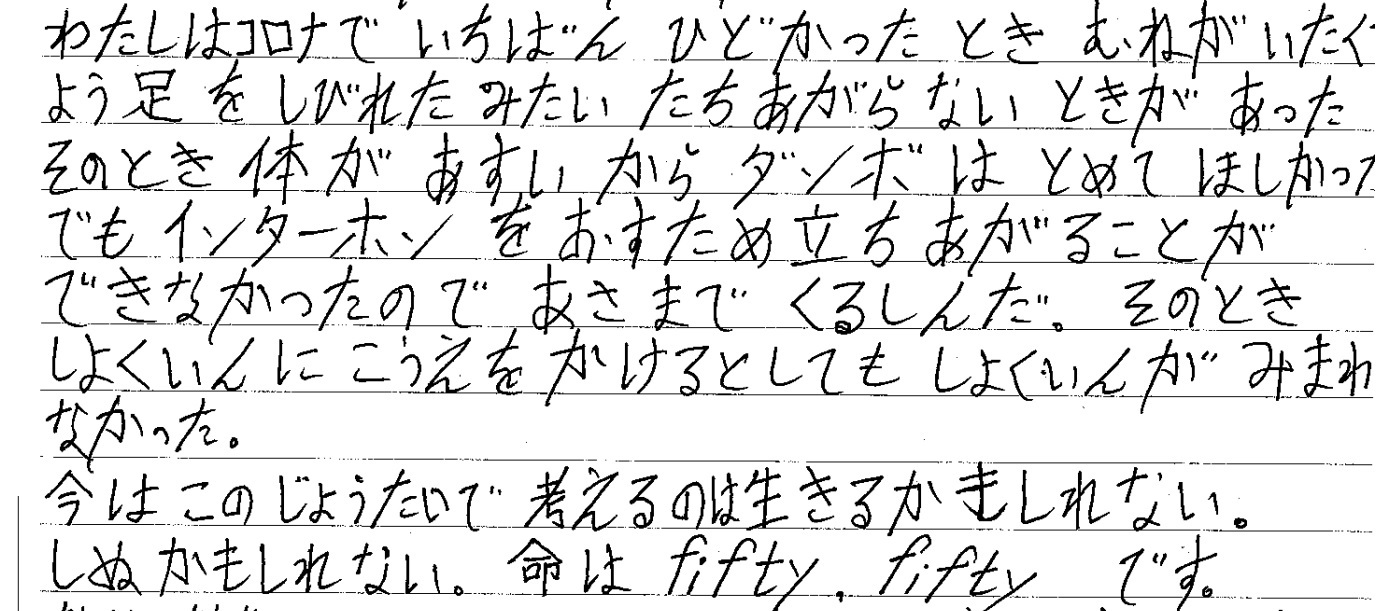 わたしはコロナで いちばん ひどかった とき むねがいたく
よう足を しびれた みたい たちあがらない ときが あった
そのとき 体が あすい から ダンボは とめて ほしかった
でも インターホン を おすため 立ち あがることが
できなかったので あさまで くるしんだ。 そのとき
しよくいんに こうえを かけるとしても しよくいんが みまれ
なかった。
今は このじょうたいで 考えるのは生きるかもしれない。
しぬかもしれない。 命は fifty, fifty です。